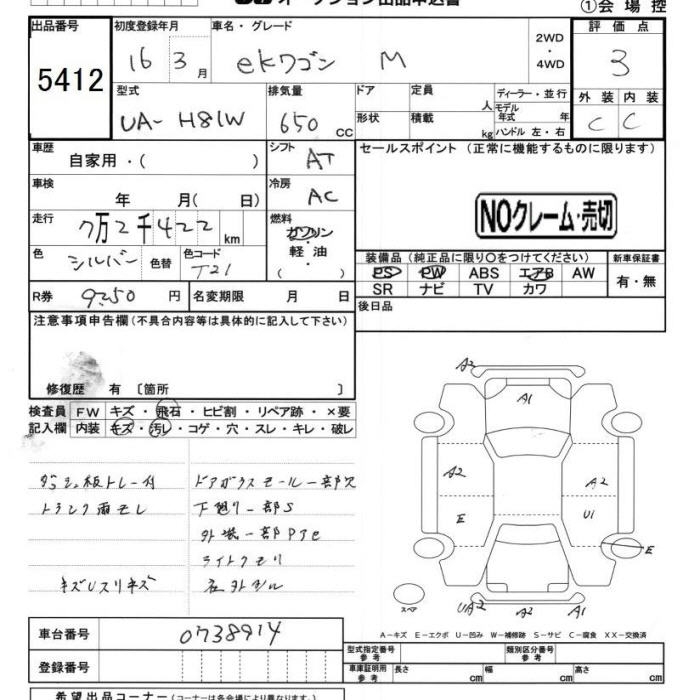 ①会場控
出品番号 5412
初度登録年月 16 3月
車名・グレード ekワゴン M
2WD・4WD
評価点 3
型式 UA-H81W
排気量 650 CC
ドア 定員 人
形状 積載 kg
ディーラー・並行
モデル年式 年
ハンドル 左・右
外装 内装
C C
車歴 自家用・( )
シフト AT
セールスポイント(正常に機能するものに限ります)
車検 年 月( 日)
冷房 AC
NOクレーム・売切
走行 7万2千422 km
燃料 ガソリン・軽油・( )
色 シルバー 色替 色コード T21
装備品(純正品に限り〇をつけてください) 新車保証書
PS PW ABS エアB AW 有・無
SR ナビ TV カワ
R券 9250円 名変期限 月 日
後日品
注意事項申告欄(不具合内容等は具体的に記入して下さい)
修復歴 有 〔箇所 〕
検査員 FW キズ・飛石・ヒビ割・リペア跡・×要
記入欄 内装 キズ・汚レ・コゲ・穴・スレ・キレ・破レ
トランク雨モレ
キズUスリキズ
ドアガラスモール一部欠
下廻り一部S
ライトクモリ
A2
A1
A2
A2
E
U1
E
スペア
UA2
A2
A1
A-キズ E-エクボ U-凹み W-補修跡 S-サビ C-腐食 XX-交換済
車台番号 0738914
登録番号
型式指定番号 参考
類別区分番号 参考
車庫証明用 参考 長さ cm 幅 cm 高さ cm
希望出品コーナー(コーナーは各会場により異なります)